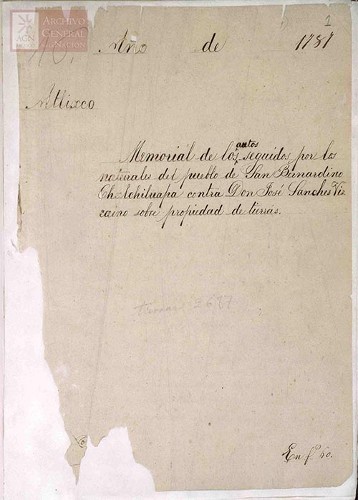 ARCHIVO
GENERAL
DE LA NACIÓN
1
Año de 1787
Atlixco
autos
Memorial de los seguidos por los
naturales del pueblo de San Bernardino
Chalchiluapa contra Don José Sanches Viz
caino sobre propiedad de tierras.
En f. 50.